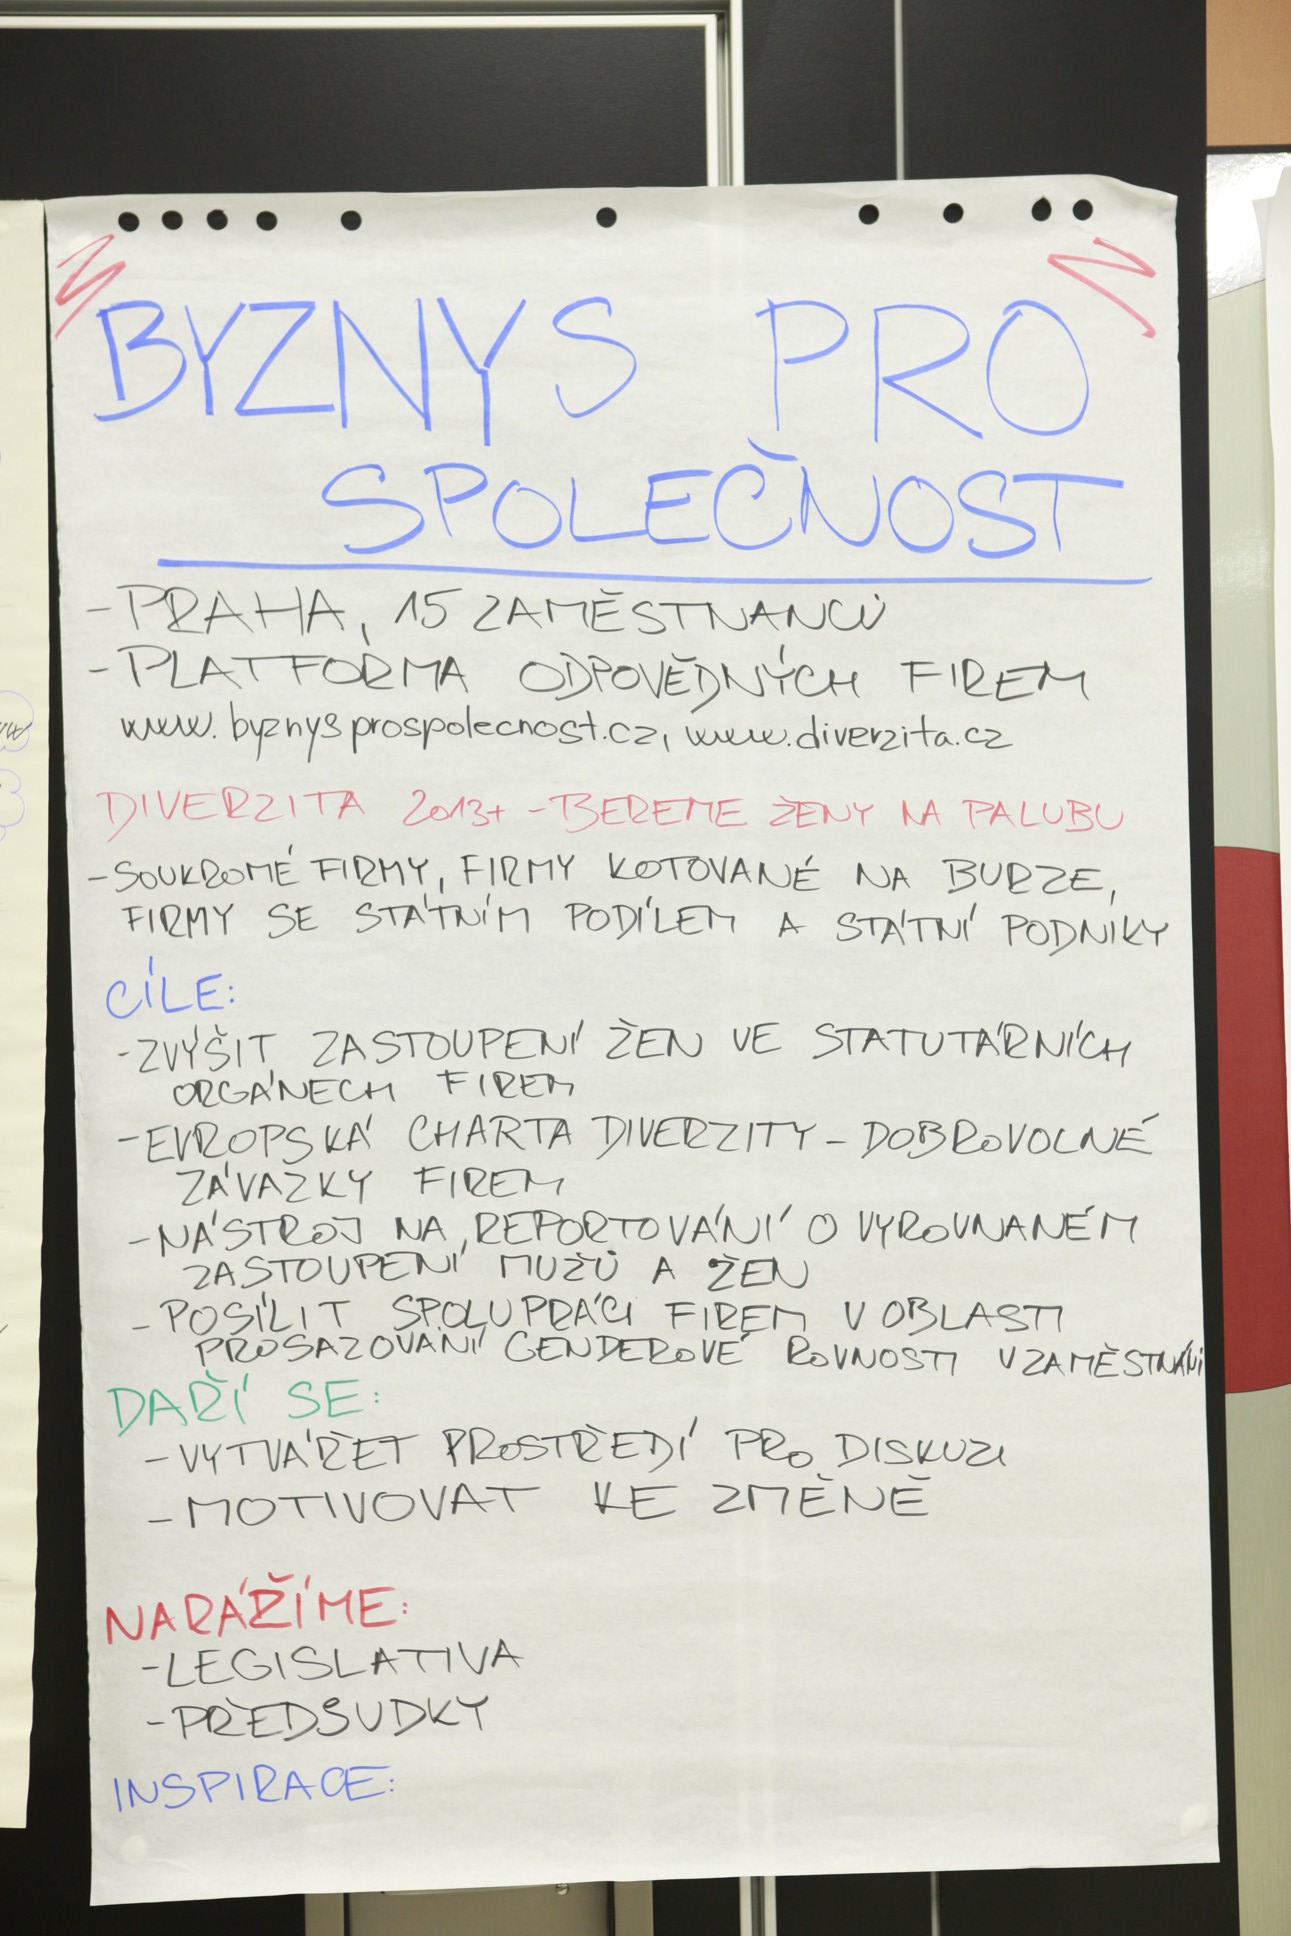 BYZNYS PRO
SPOLEČNOST
- PRAHA, 15 ZAMĚSTNANCŮ
- PLATFORMA ODPOVĚDNÝCH FIREM
www.byznysprospolecnost.cz, www.diverzita.cz
DIVERZITA 2013+ - BEREME ŽENY NA PALUBU
- SOUKROMÉ FIRMY, FIRMY KOTOVANÉ NA BURZE,
FIRMY SE STÁTNÍM PODÍLEM A STÁTNÍ PODNIKY
CÍLE:
- ZVÝŠIT ZASTOUPENÍ ŽEN VE STATUTÁRNÍCH
ORGÁNECH FIREM
- EVROPSKÁ CHARTA DIVERZITY - DOBROVOLNÉ
ZÁVAZKY FIREM
- NÁSTROJ NA REPORTOVÁNÍ O VYROVNANÉM
ZASTOUPENÍ MUŽŮ A ŽEN
- POSÍLIT SPOLUPRÁCI FIREM V OBLASTI
PROSAZOVÁNÍ GENDEROVÉ ROVNOSTI V ZAMĚSTNÁNÍ
DAŘÍ SE:
- VYTVÁŘET PROSTŘEDÍ PRO DISKUZI
- MOTIVOVAT KE ZMĚNĚ
NARÁŽÍME:
- LEGISLATIVA
- PŘEDSUDKY
INSPIRACE: